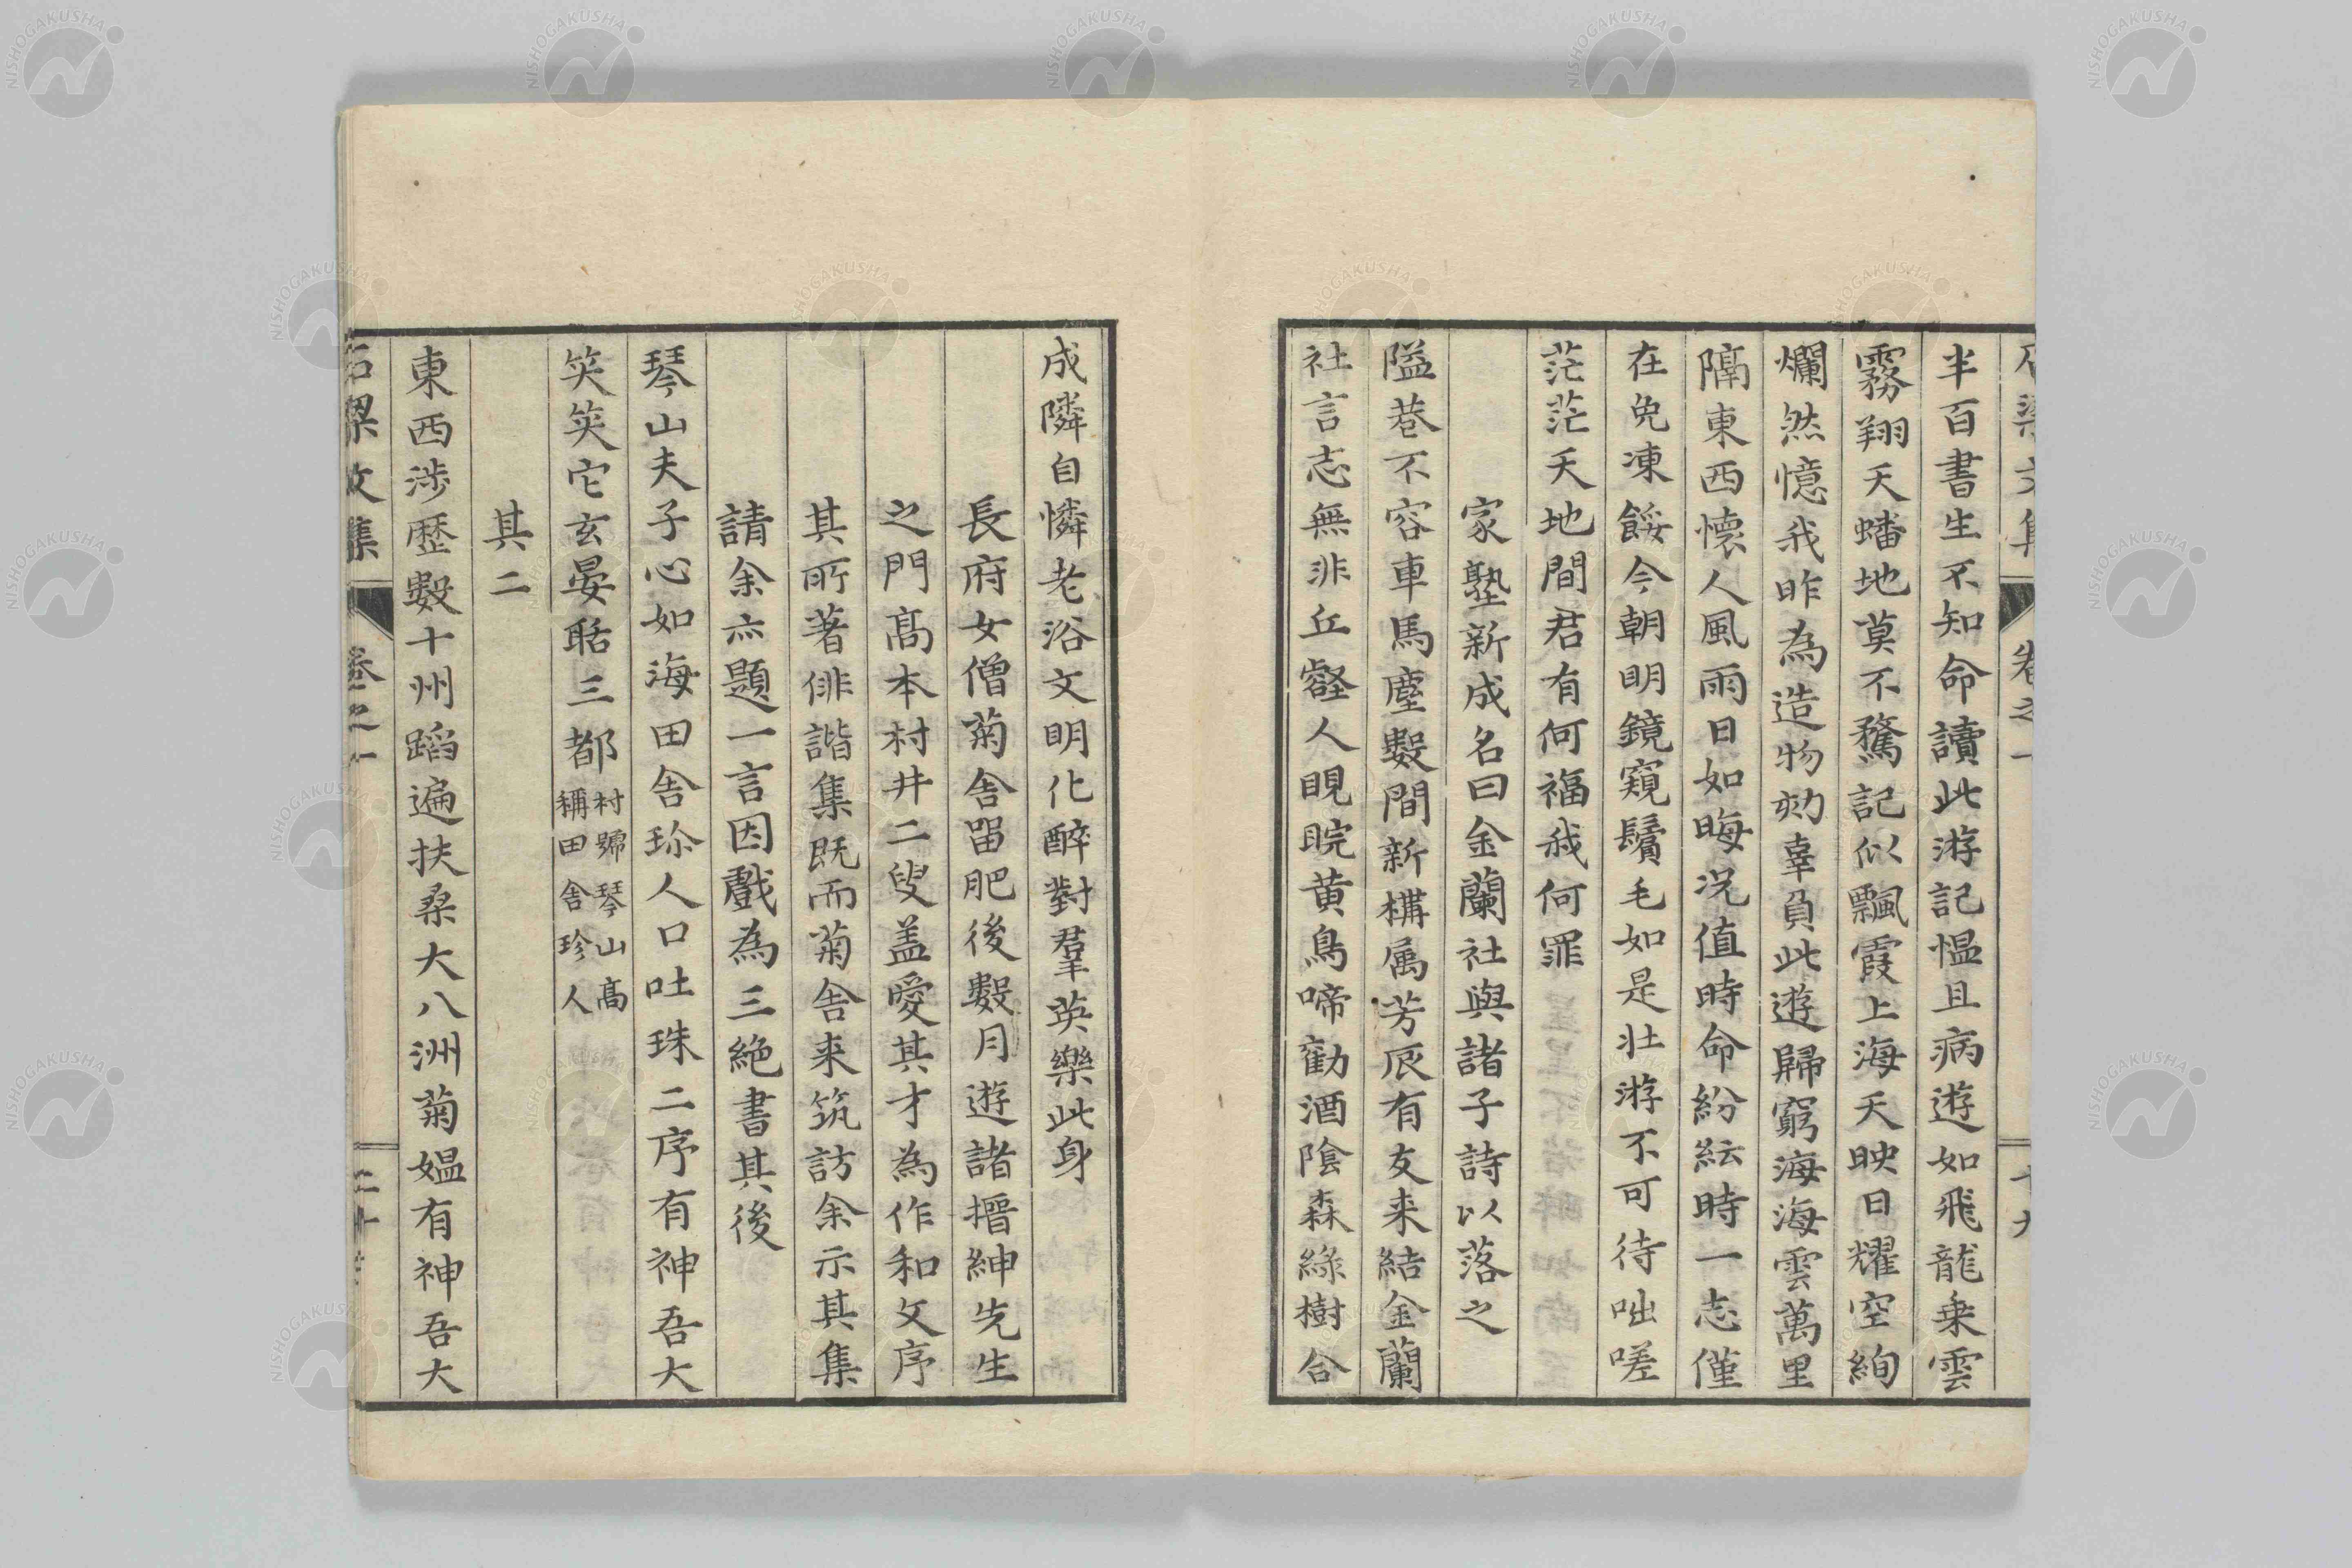 半百書生不知命讀此游記愠且病遊如飛龍乗雲
霧翔天蟠地莫不騖記似飄霞上海天映日耀空絢
爛然憶我昨為造物劾辜負此遊歸窮海海雲萬里
隔東西懐人風雨日如晦况值時命紛紜時一志僅
在免凍餒今朝明鏡窺鬢毛如是壮游不可待咄嗟
茫茫天地間君有何福我何罪
家塾新成名曰金蘭社與諸子詩以落之
隘巷不容車馬塵數間新構属芳辰有友来結金蘭
社言志無非丘壑人睍睆黄鳥啼勸酒陰森緑樹合
成隣自憐老浴文明化醉對羣英樂此身
長府女僧菊舎留肥後數月遊諸搢紳先生
之門髙本村井二叟盖愛其才為作和文序
其所著俳諧集既而菊舎来筑訪余示其集
請余亦題一言因戲為三絶書其後
琴山夫子心如海田舎珎人口吐珠二序有神吾大
笑笑它玄晏聒三都
村號琴山髙
稱田舎珍人
其二
東西渉歴數十州蹈遍扶桑大八洲菊媼有神吾大
石梁文集
卷之一